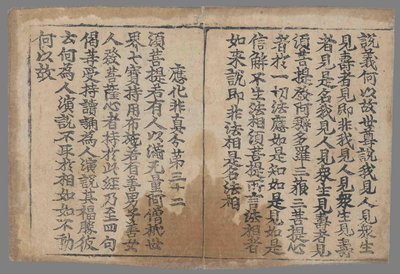 說義何以故世尊說我見人見衆生
見壽者見即非我見人見衆生見壽
者見是名我見人見衆生見壽者見
須菩提發阿耨多羅三藐三菩提心
者於一切法應如是知如是見如是
信解不生法相須菩提所言法相者
如來說即非法相是名法相
應化非真分第三十二
須菩提若有人以滿无量阿僧祇世
界七寶持用布施若有善男子善女
人發菩薩心者持於此經乃至四句
偈等受持讀誦為人演說其福勝彼
云何為人演說不取於相如如不動
何以故